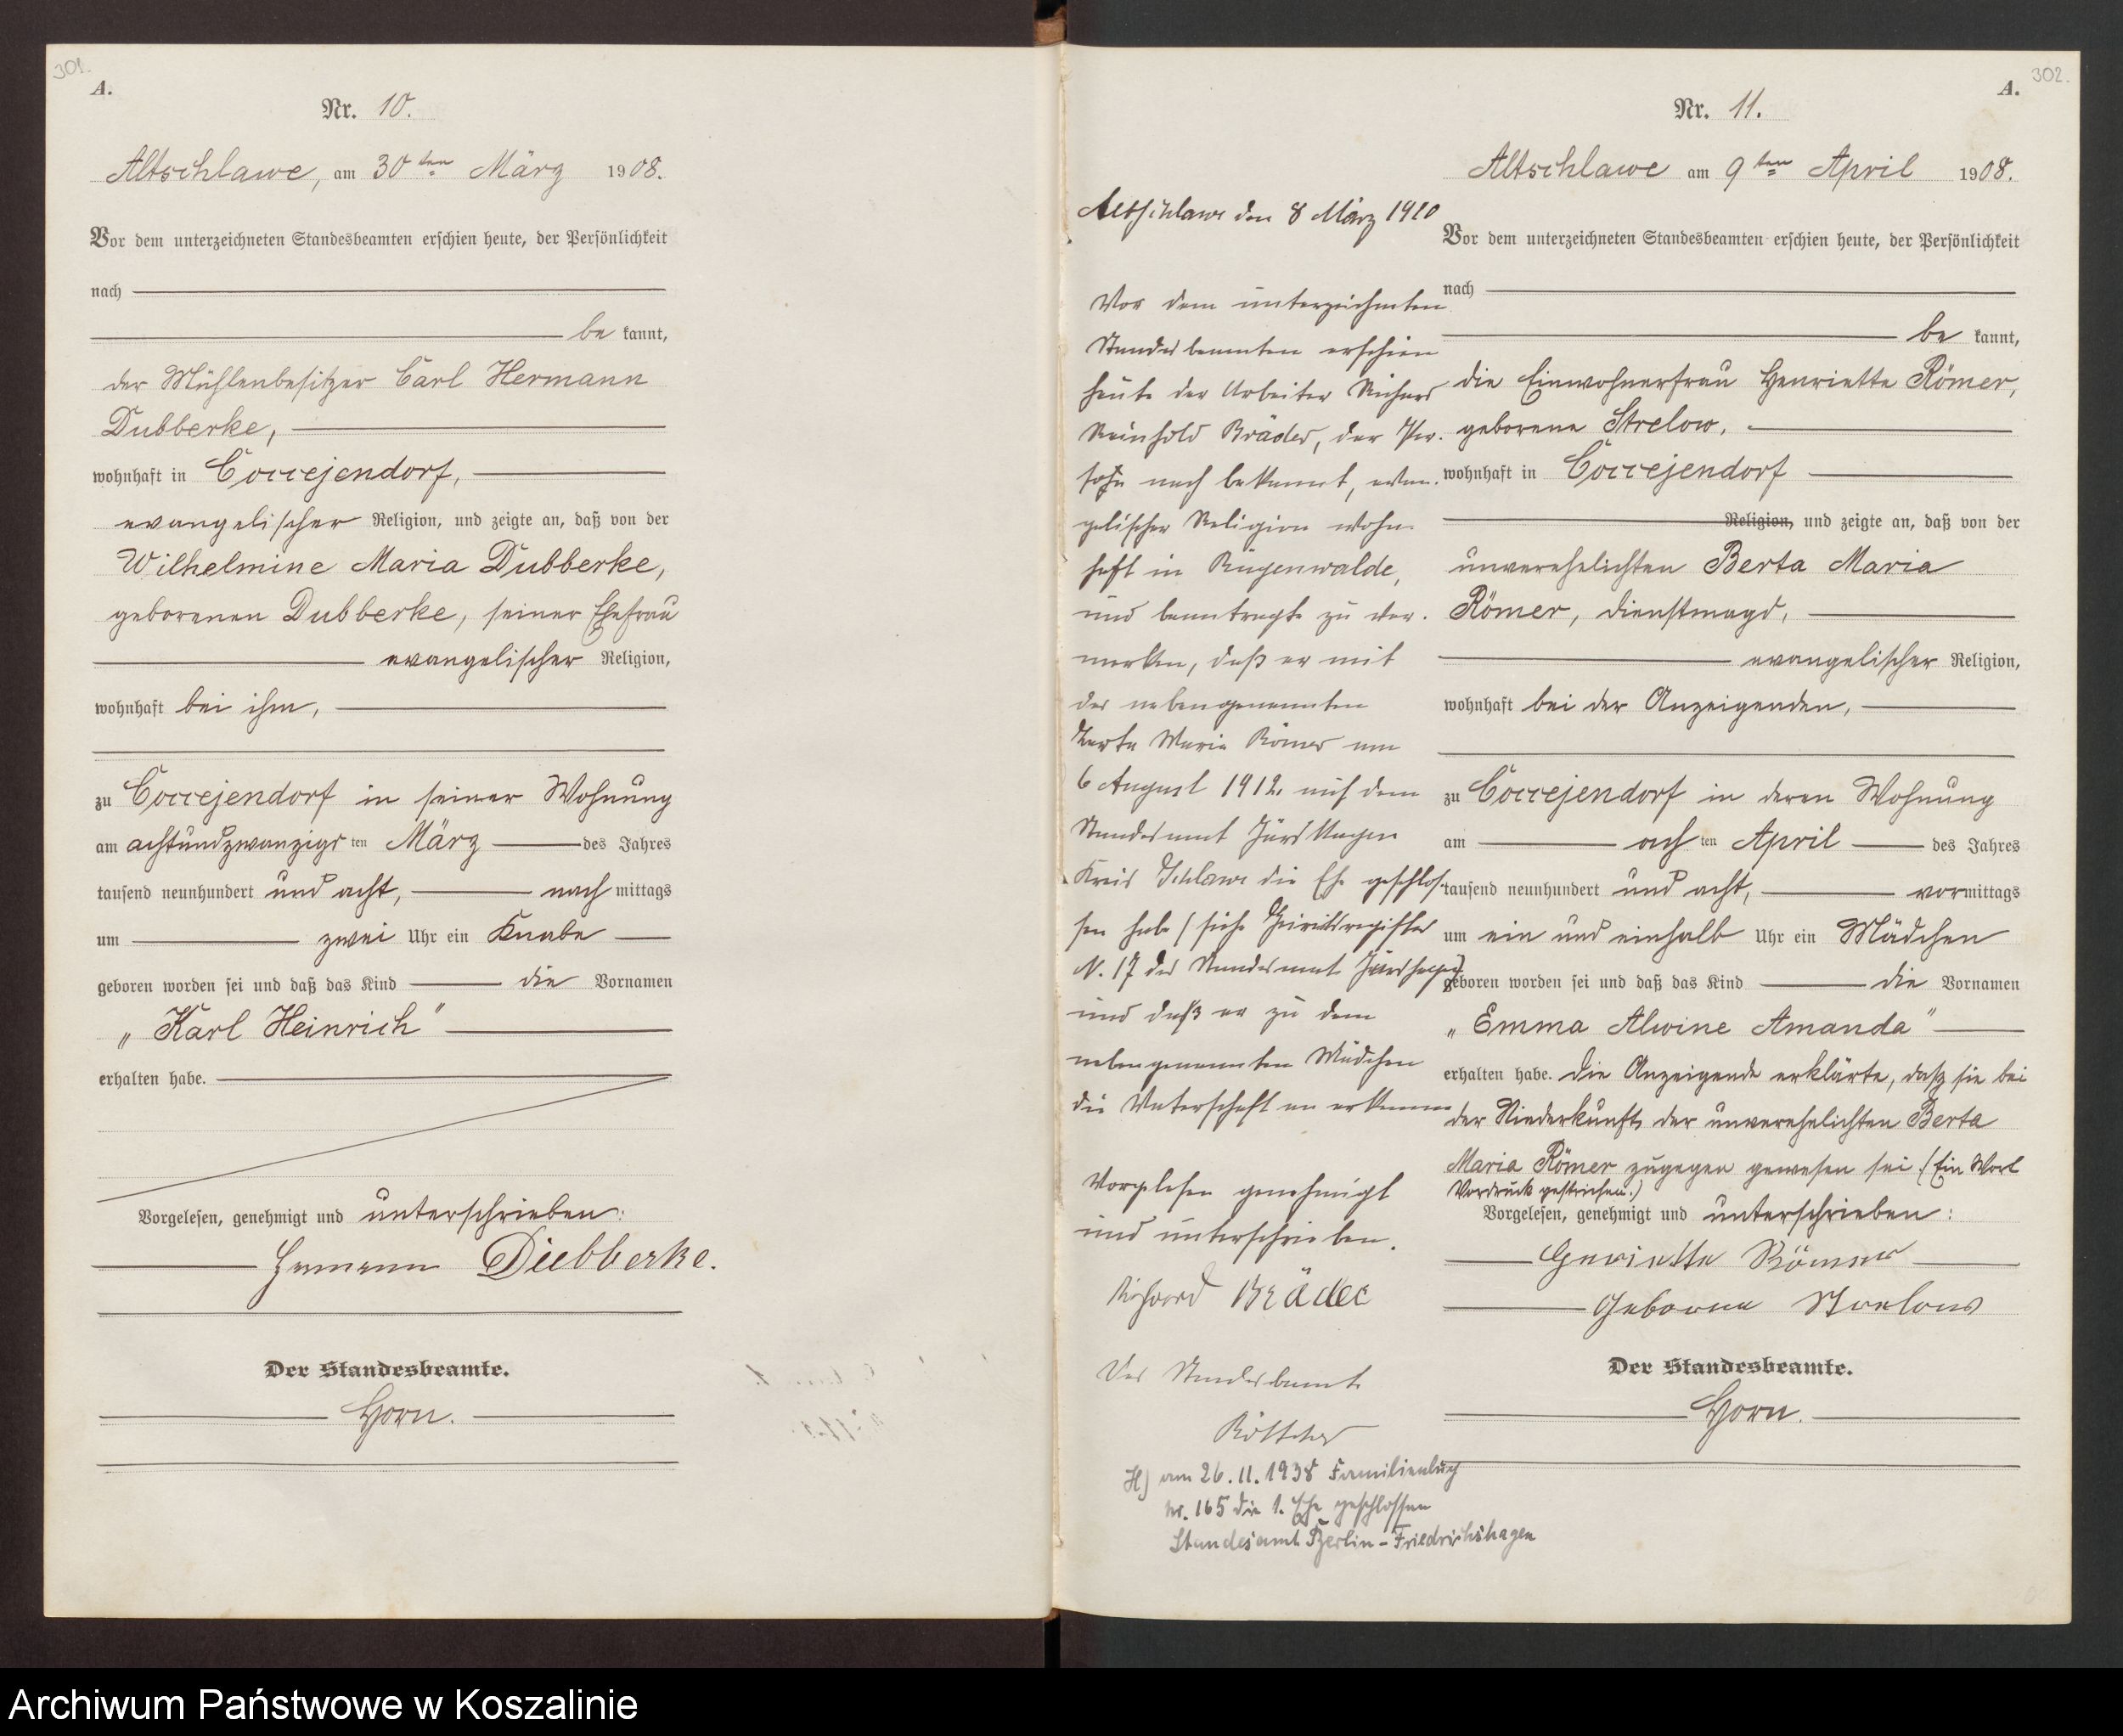 301.
A.
Nr. 10.
Altschlawe, am 30ten März 1908.
Vor dem unterzeichneten Standesbeamten erschien heute, der Persönlichkeit
nach
be kannt,
der Mühlenbesitzer Carl Hermann
Dubberke,
wohnhaft in Coccejendorf,
evangelischer Religion, und zeigte an, daß von der
Wilhelmine Maria Dubberke,
geborenen Dubberke, seiner Ehefrau
evangelischer Religion,
wohnhaft bei ihm,
zu Coccejendorf in seiner Wohnung
am achtundzwanzigsten März des Jahres
tausend neunhundert und acht, nach mittags
um zwei Uhr ein Knabe
geboren worden sei und daß das Kind die Vornamen
„Karl Heinrich"
erhalten habe.
Vorgelesen, genehmigt und unterschrieben:
Hermann Dubberke.
Der Standesbeamte.
Horn.
302.
A.
Nr. 11.
Altschlawe am 9ten April 1908.
Vor dem unterzeichneten Standesbeamten erschien heute, der Persönlichkeit
nach
be kannt,
die Einwohnerfrau Henriette Römer,
geborene Strelow,
wohnhaft in Coccejendorf
Religion, und zeigte an, daß von der
unverehelichten Berta Maria
Römer, Dienstmagd,
evangelischer Religion,
wohnhaft bei der Anzeigenden,
zu Coccejendorf in deren Wohnung
am achten April des Jahres
tausend neunhundert und acht, vormittags
um ein und einhalb Uhr ein Mädchen
geboren worden sei und daß das Kind die Vornamen
„Emma Alwine Amanda"
erhalten habe. Die Anzeigende erklärte, daß sie bei
der Niederkunft der unverehelichten Berta
Maria Römer zugegen gewesen sei. (Ein Wort
Vordruck gestrichen.)
Vorgelesen, genehmigt und unterschrieben:
Henriette Römer
Geborne Strelow
Der Standesbeamte.
Horn.
Altschlawe den 8 März 1920
Vor dem unterzeichneten
Standesbeamten erschien
heute der Arbeiter Richard
Reinhold Bräder, der Per-
sohn nach bekannt, evan-
gelischer Religion wohn-
haft in Rügenwalde,
und beantragte zu ver-
merken, daß er mit
der nebengenannten
Berta Maria Römer am
6 August 1912 auf dem
Standesamt
Kreis Schlawe die Ehe geschlos-
sen habe (siehe Heiratsregister
N. 17 des Standesamt
und daß er zu dem
nebengenannten Mädchen
die Vaterschaft an erkenne
Vorgelesen genehmigt
und unterschrieben.
Richard Bräder
Der Standesbeamte
Böttcher
H) am 26.11.1938 Familienbuch
Nr. 165 die 1. Ehe geschlossen
Standesamt Berlin-Friedrichshagen
Archiwum Państwowe w Koszalinie